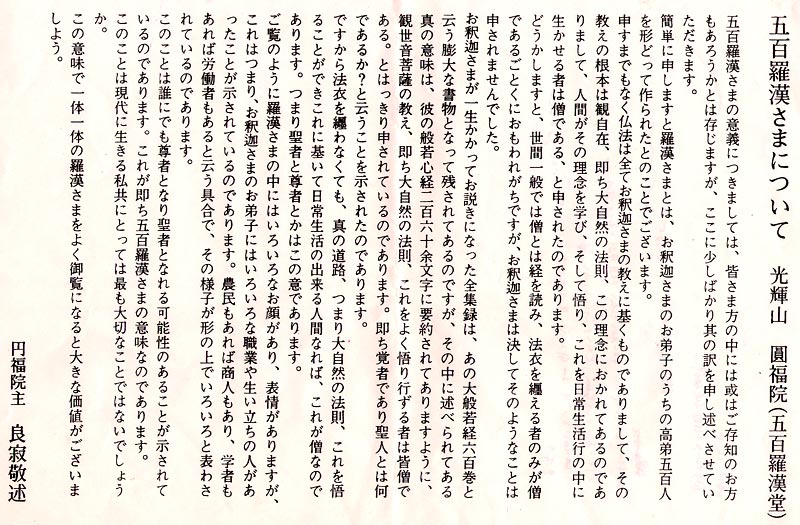 五百羅漢さまについて　光輝山　圓福院（五百羅漢堂）
五百羅漢さまの意義につきましては、皆さま方の中には或はご存知のお方
もあろうかとは存じますが、ここに少しばかり其の訳を申し述べさせてい
ただきます。
簡単に申しますと羅漢さまとは、お釈迦さまのお弟子のうちの高弟五百人
を形どって作られたとのことでございます。
申すまでもなく仏法は全てお釈迦さまの教えに基くものでありまして、その
教えの根本は観自在、即ち大自然の法則、この理念におかれてあるのであ
りまして、人間がその理念を学び、そして悟り、これを日常生活行の中に
生かせる者は僧である、と申されたのであります。
どうかしますと、世間一般では僧とは経を読み、法衣を纒える者のみが僧
であるごとくにおもわれがちですが、お釈迦さまは決してそのようなことは
申されませんでした。
お釈迦さまが一生かかってお説きになった全集録は、あの大般若経六百巻と
云う膨大な書物となって残されてあるのですが、その中に述べられてある
真の意味は、彼の般若心経二百六十余文字に要約されてありますように、
観世音菩薩の教え、即ち大自然の法則、これをよく悟り行ずる者は皆僧で
ある。とはっきり申されているのであります。即ち覚者であり聖人とは何
であるか？と云うことを示されたのであります。
ですから法衣を纒わなくても、真の道路、つまり大自然の法則、これを悟
ることができこれに基いて日常生活の出来る人間なれば、これが僧なので
あります。つまり聖者と尊者とかはこの意であります。
ご覧のように羅漢さまの中にはいろいろなお顔があり、表情がありますが、
これはつまり、お釈迦さまのお弟子にはいろいろな職業や生い立ちの人があ
ったことが示されているのであります。農民もあれば商人もあり、学者も
あれば労働者もあると云う具合で、その様子が形の上でいろいろと表わさ
れているのであります。
このことは誰にでも尊者となり聖者となれる可能性のあることが示されて
いるのであります。これが即ち五百羅漢さまの意味なのであります。
このことは現代に生きる私共にとっては最も大切なことではないでしょう
か。
この意味で一体一体の羅漢さまをよく御覧になると大きな価値がございま
しょう。
円福院主　良寂敬述